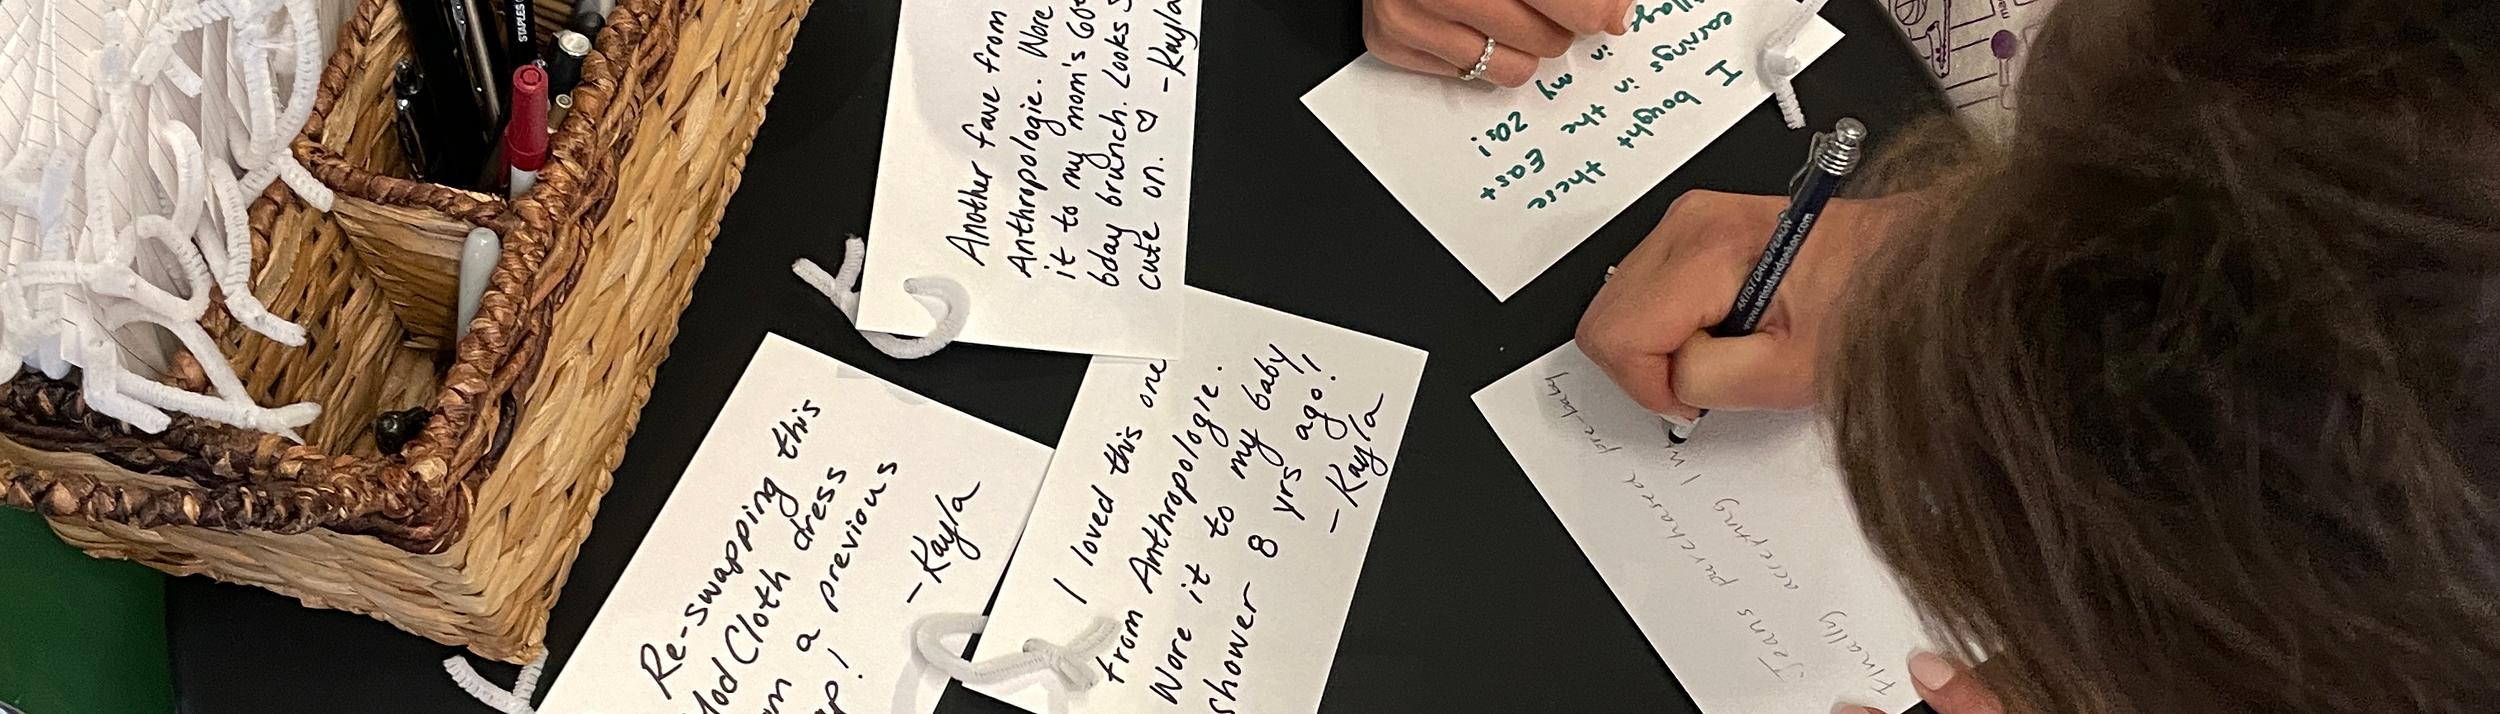 STAPLES
Another fave from
Anthropologie. Wore
it to my mom's 60th
bday brunch. Looks
cute on. ♡ -Kayla
I bought these
earrings in the East
in my 20s!
ARTIST DAVID PEACH
Re-swapping this
Cloth dress
a previous
-Kayla
I loved this one
from Anthropologie.
Wore it to my baby
shower 8 yrs ago!
-Kayla
Jeans purchased pre-baby
Finally accepting I